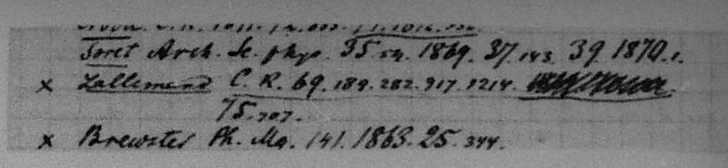 Soret Arch. Sc. phys. 35.54. 1869. 37.143. 39. 1870.1.
x Lallemand C. R. 69. 189. 282. 917. 1214.
75. 707.
x Brewster Ph. Mg. 141. 1863. 25. 344.